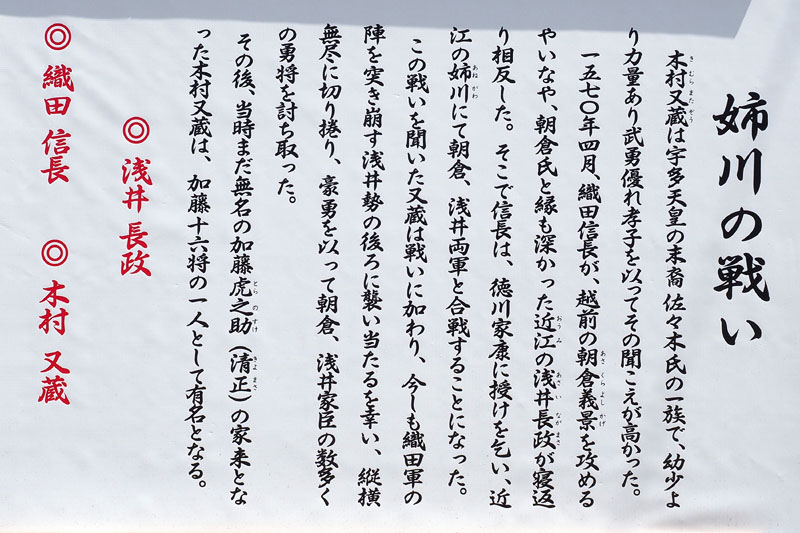 姉川の戦い
木村又蔵は宇多天皇の末裔 佐々木氏の一族で、幼少よ
り力量あり武勇優れ孝子を以ってその聞こえが高かった。
一五七〇年四月、織田信長が、越前の朝倉義景を攻める
やいなや、朝倉氏と縁も深かった近江の浅井長政が寝返
り相反した。そこで信長は、徳川家康に授けを乞い、近
江の姉川にて朝倉、浅井両軍と合戦することになった。
この戦いを聞いた又蔵は戦いに加わり、今しも織田軍の
陣を突き崩す浅井勢の後ろに襲い当たるを幸い、縦横
無尽に切り捲り、豪勇を以って朝倉、浅井家臣の数多く
の勇将を討ち取った。
その後、当時まだ無名の加藤虎之助（清正）の家来とな
った木村又蔵は、加藤十六将の一人として有名となる。
◎ 浅井 長政
◎ 織田 信長 ◎ 木村 又蔵